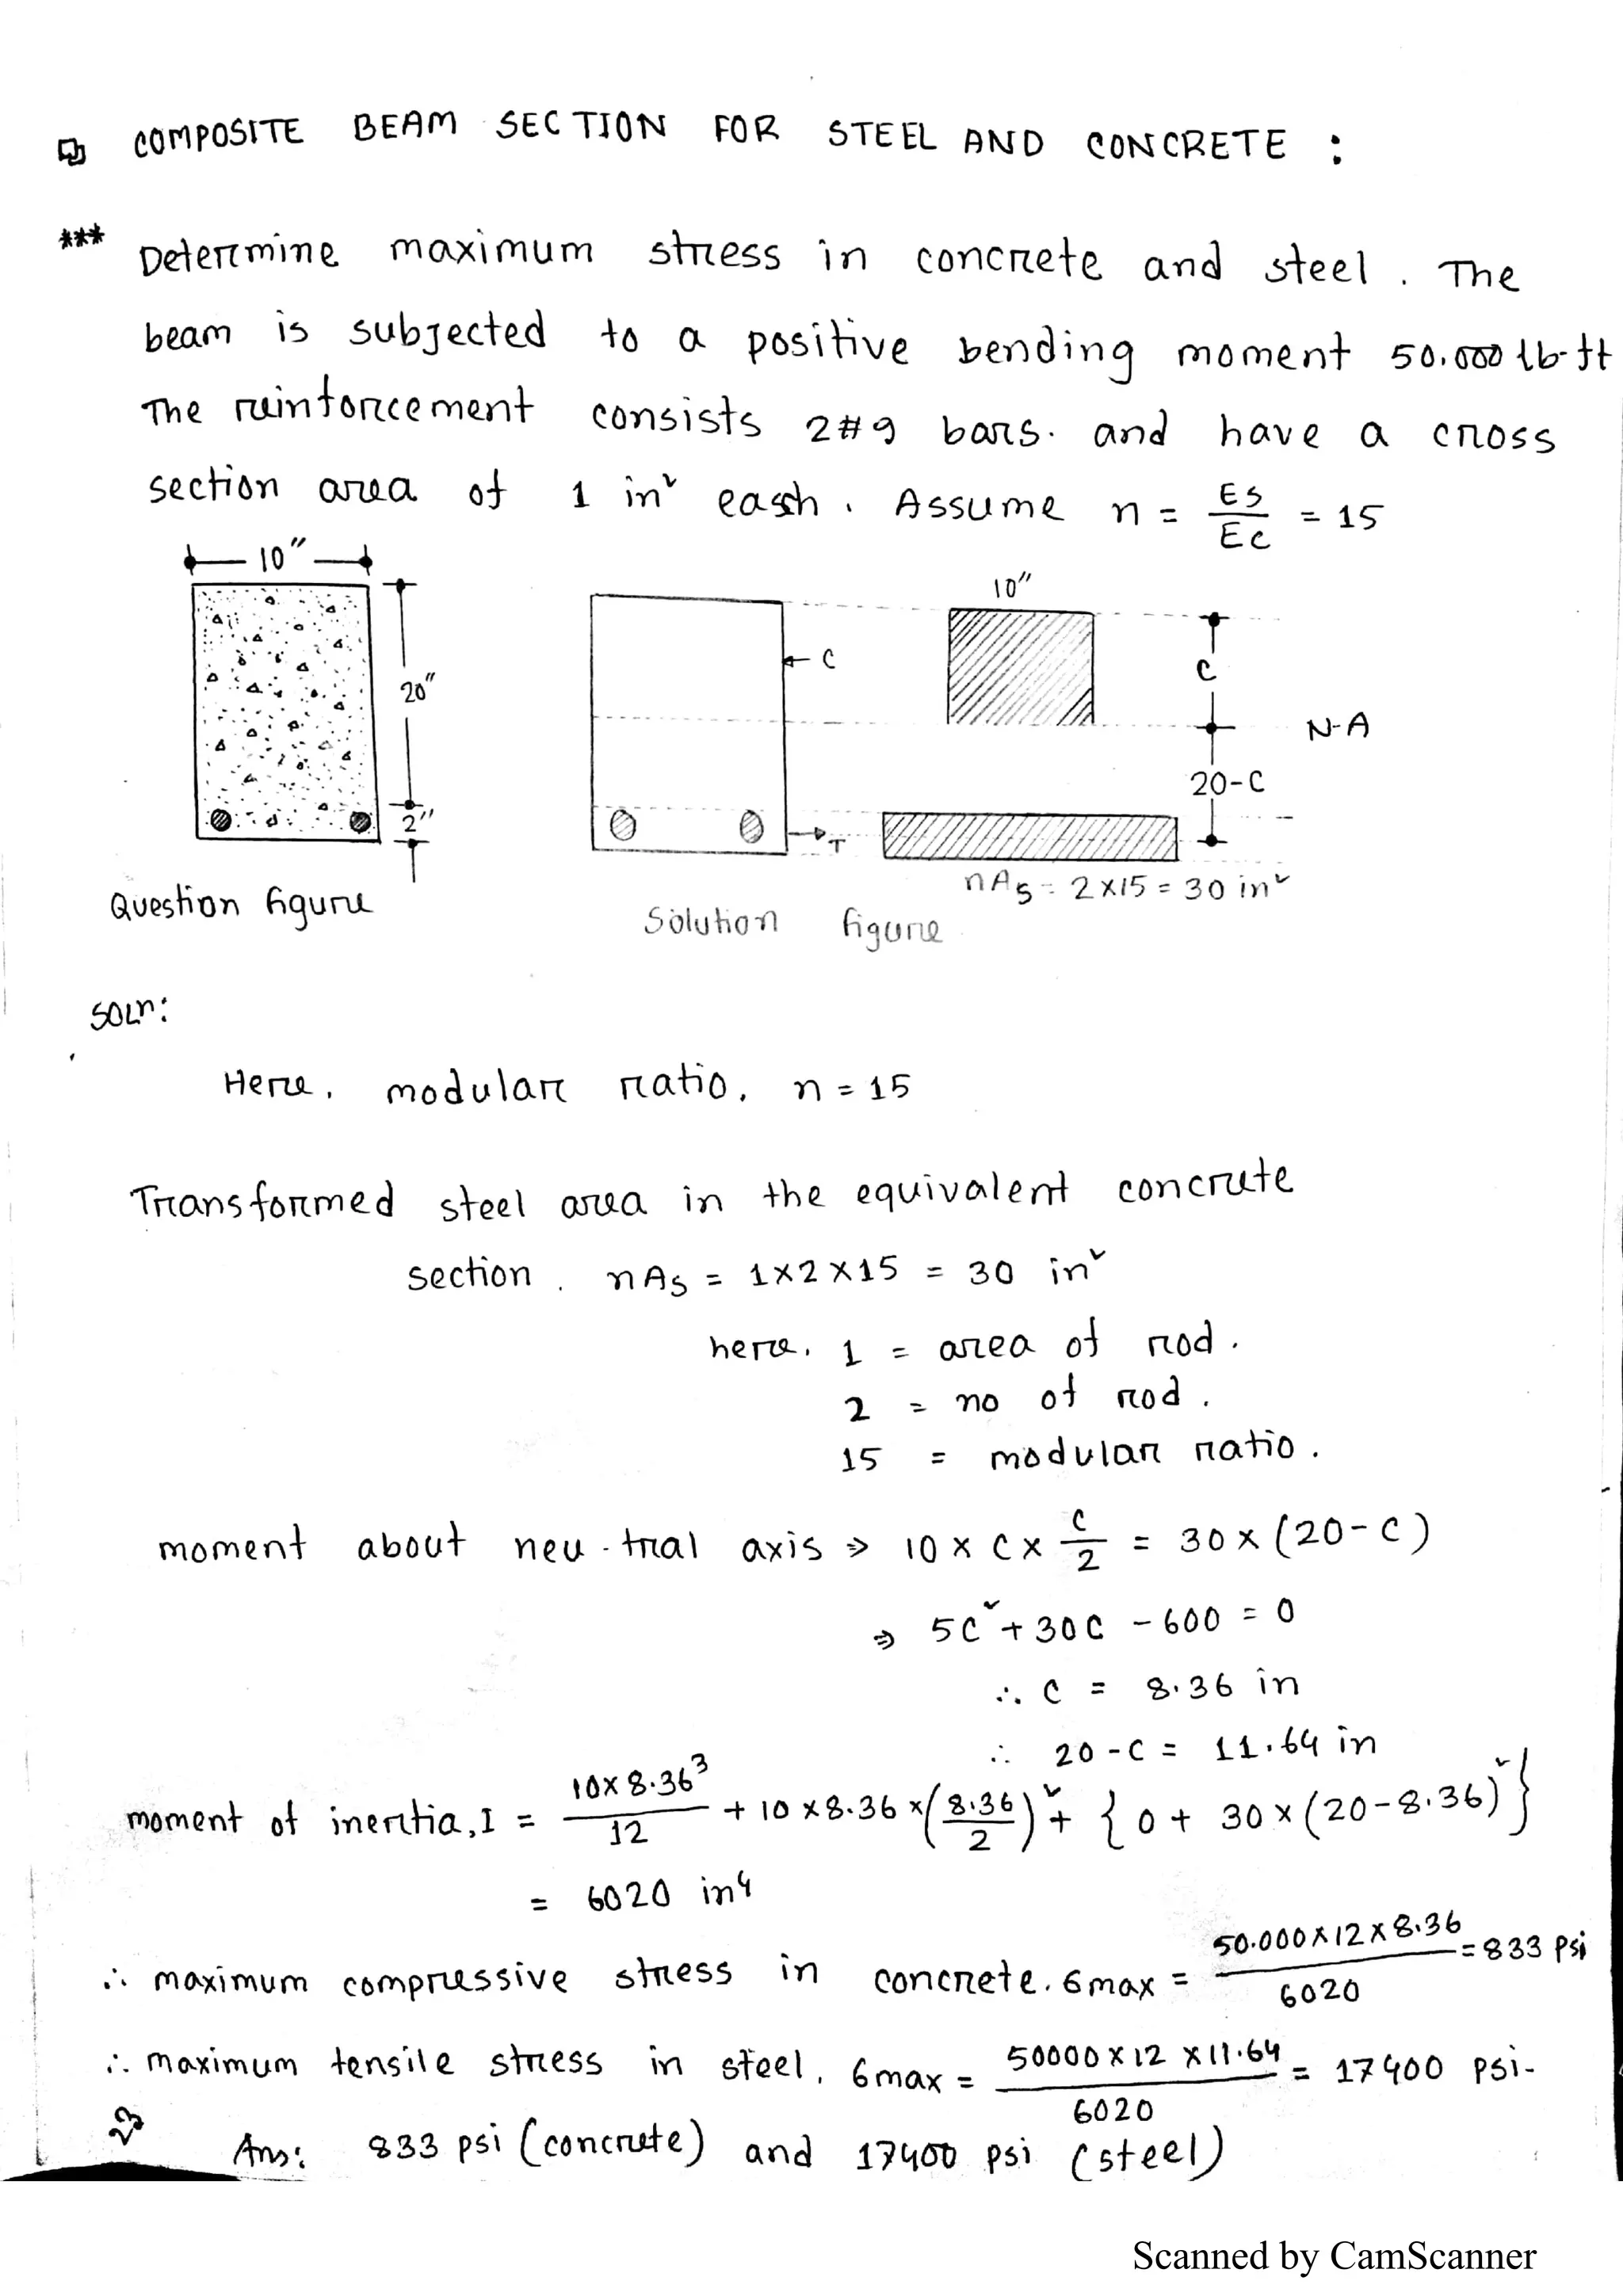 COMPOSITE BEAM SECTION FOR STEEL AND CONCRETE :
*** Determine maximum stress in concrete and steel. The
beam is subjected to a positive bending moment 50.000 lb-ft
The reinforcement consists 2#9 bars. and have a cross
section area of 1 in² each. Assume n = Es/Ec = 15
10"
20"
2"
Question figure
C
T
10"
C
N-A
20-C
nAs = 2x15 = 30 in²
Solution figure
Soln:
Here, modular ratio, n = 15
Transformed steel area in the equivalent concrete
section. nAs = 1x2x15 = 30 in²
here, 1 = area of rod.
2 = no of rod.
15 = modular ratio.
moment about neu-tral axis ⇒ 10 x C x C/2 = 30 x (20-C)
⇒ 5C² + 30C - 600 = 0
∴ C = 8.36 in
∴ 20-C = 11.64 in
moment of inertia, I = 10x8.36³/12 + 10x8.36x(8.36/2)² + {0 + 30x(20-8.36)²}
= 6020 in4
∴ maximum compressive stress in concrete. 6max = 50.000x12x8.36/6020 = 833 Psi
∴ maximum tensile stress in steel, 6max = 50000x12x11.64/6020 = 17400 Psi-
Ans: 833 psi (concrete) and 17400 psi (steel)
Scanned by CamScanner